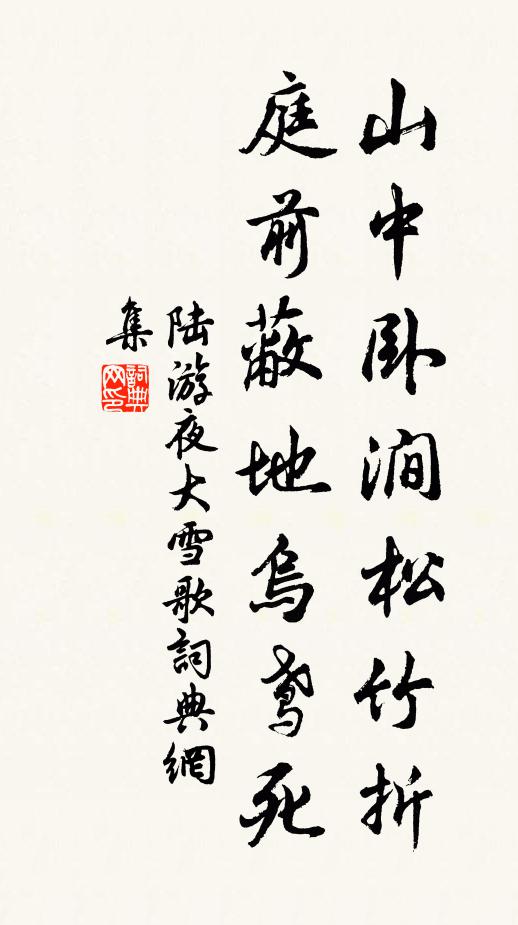 山中卧澗松竹折
庭前蔽地烏鳶死
陆游夜大雪歌詞典網
集
詞典
网印